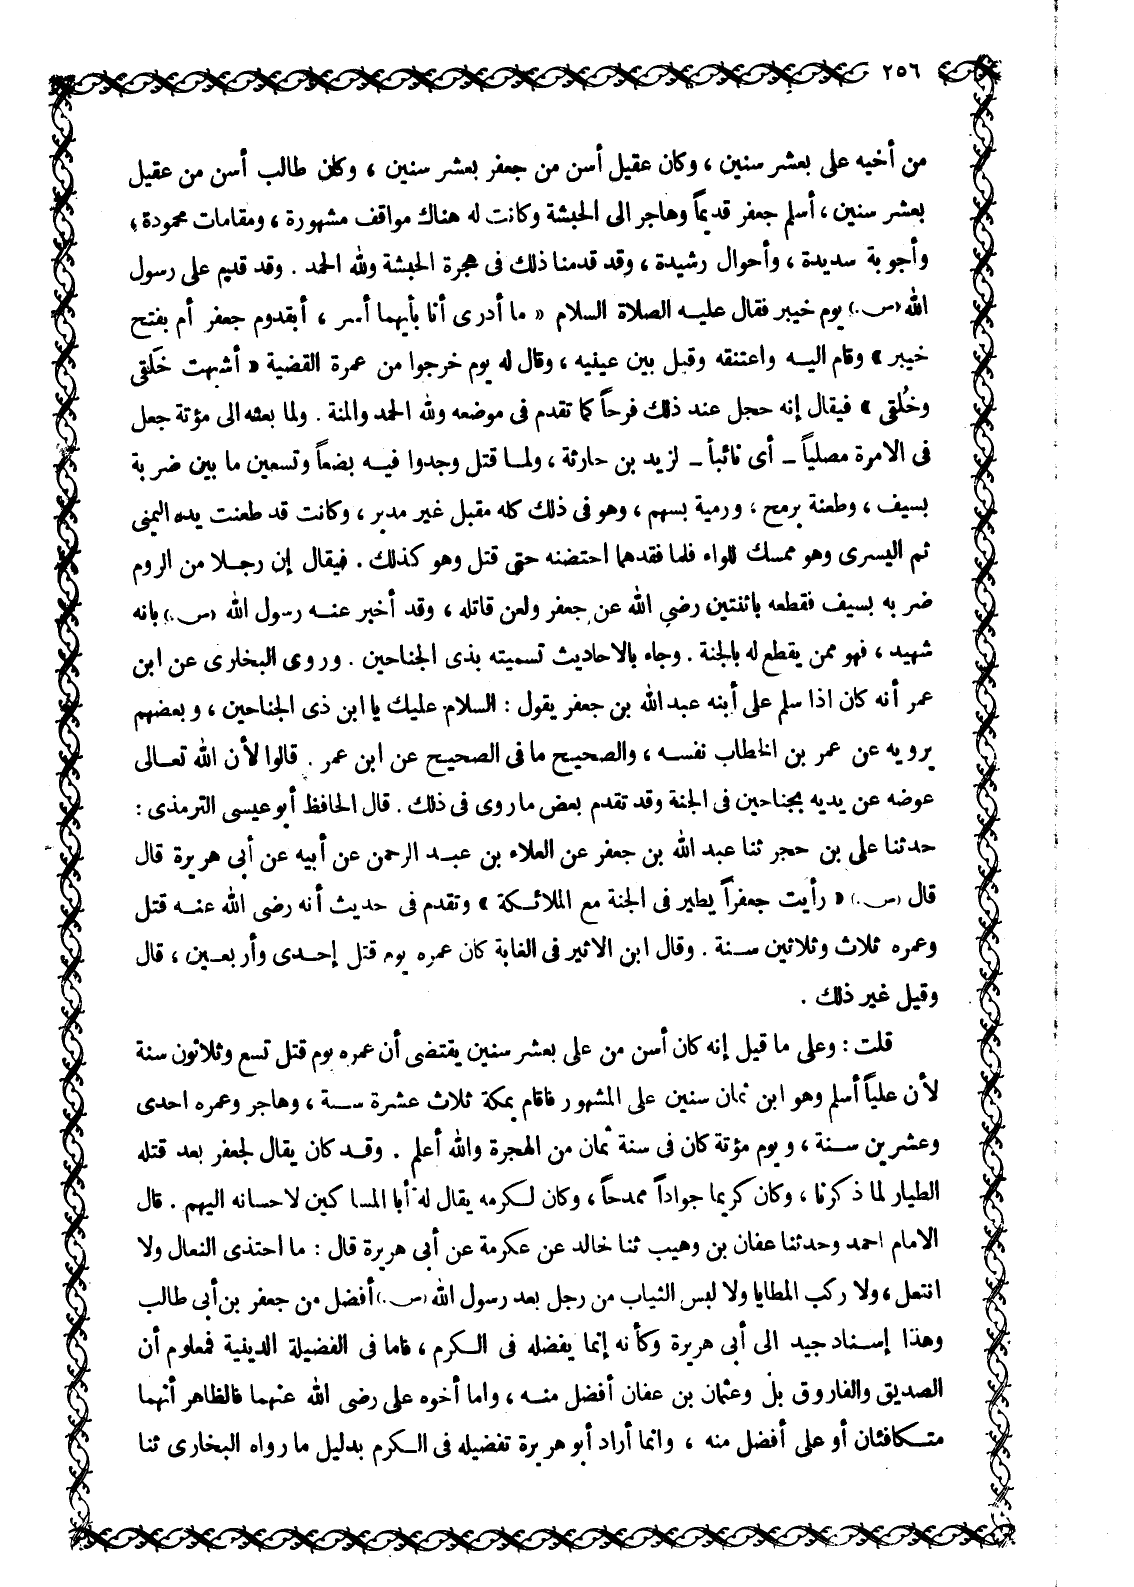 ٢٥٦
من أخيه على بعشر سنين ، وكان عقيل أسن من جعفر بعشر سنين ، وكان طالب أسن من عقيل
بعشر سنين ، أسلم جعفر قديماً وهاجر الى الحبشة وكانت له هناك مواقف مشهورة ، ومقامات محمودة ،
وأجوبة سديدة ، وأحوال رشيدة ، وقد قدمنا ذلك فى هجرة الحبشة ولله الحمد . وقد قدم على رسول
الله (س.) يوم خيبر فقال عليه الصلاة السلام « ما أدرى أنا بأيهما أسر ، أبقدوم جعفر أم بفتح
خيبر » وقام اليه واعتنقه وقبل بين عينيه ، وقال له يوم خرجوا من عمرة القضية « أشبهت خَلقى
وخُلقى » فيقال إنه حجل عند ذلك فرحاً كما تقدم فى موضعه ولله الحمد والمنة . ولما بعثه الى مؤتة جعل
فى الامرة مصلياً ـ أى نائباً ـ لزيد بن حارثة ، ولما قتل وجدوا فيه بضعاً وتسعين ما بين ضربة
بسيف ، وطعنة برمح ، ورمية بسهم ، وهو فى ذلك كله مقبل غير مدبر ، وكانت قد طعنت يده اليمنى
ثم اليسرى وهو ممسك للواء فلما فقدهما احتضنه حتى قتل وهو كذلك . فيقال إن رجلا من الروم
ضربه بسيف فقطعه باثنتين رضي الله عن جعفر ولعن قاتله ، وقد أخبر عنه رسول الله (س.) بانه
شهيد ، فهو ممن يقطع له بالجنة . وجاه بالاحاديث تسميته بذى الجناحين . وروى البخارى عن ابن
عمر أنه كان اذا سلم على أبنه عبد الله بن جعفر يقول : السلام عليك يا ابن ذى الجناحين ، وبعضهم
يرويه عن عمر بن الخطاب نفسه ، والصحيح ما فى الصحيح عن ابن عمر . قالوا لأن الله تعالى
عوضه عن يديه بجناحين فى الجنة وقد تقدم بعض ما روى فى ذلك . قال الحافظ أبو عيسى الترمذى :
حدثنا على بن حجر ثنا عبد الله بن جعفر عن العلاء بن عبد الرحمن عن أبيه عن أبى هريرة قال
قال (س.) « رأيت جعفراً يطير فى الجنة مع الملائكة » وتقدم فى حديث أنه رضى الله عنه قتل
وعمره ثلاث وثلاثين سنة . وقال ابن الاثير فى الغابة كان عمره يوم قتل إحدى وأربعين ، قال
وقيل غير ذلك .
قلت : وعلى ما قيل إنه كان أسن من على بعشر سنين يقتضى أن عمره يوم قتل تسع وثلاثون سنة
لأن علياً أسلم وهو ابن ثمان سنين على المشهور فاقام بمكة ثلاث عشرة سنة ، وهاجر وعمره احدى
وعشرين سنة ، ويوم مؤتة كان فى سنة ثمان من الهجرة والله أعلم . وقد كان يقال لجعفر بعد قتله
الطيار لما ذكرنا ، وكان كريما جواداً ممدحاً ، وكان لكرمه يقال له أبا المساكين لاحسانه اليهم . قال
الامام احمد وحدثنا عفان بن وهيب ثنا خالد عن عكرمة عن أبى هريرة قال : ما احتذى النعال ولا
انتعل ، ولا ركب المطايا ولا لبس الثياب من رجل بعد رسول الله (س.) أفضل من جعفر بن أبى طالب
وهذا إسناد جيد الى أبى هريرة وكأنه إنما يفضله فى الكرم ، فاما فى الفضيلة الدينية فمعلوم أن
الصديق والفاروق بل وعثمان بن عفان أفضل منه ، واما أخوه على رضى الله عنهما فالظاهر أنهما
متكافئان أو على أفضل منه ، وانما أراد أبو هريرة تفضيله فى الكرم بدليل ما رواه البخارى ثنا